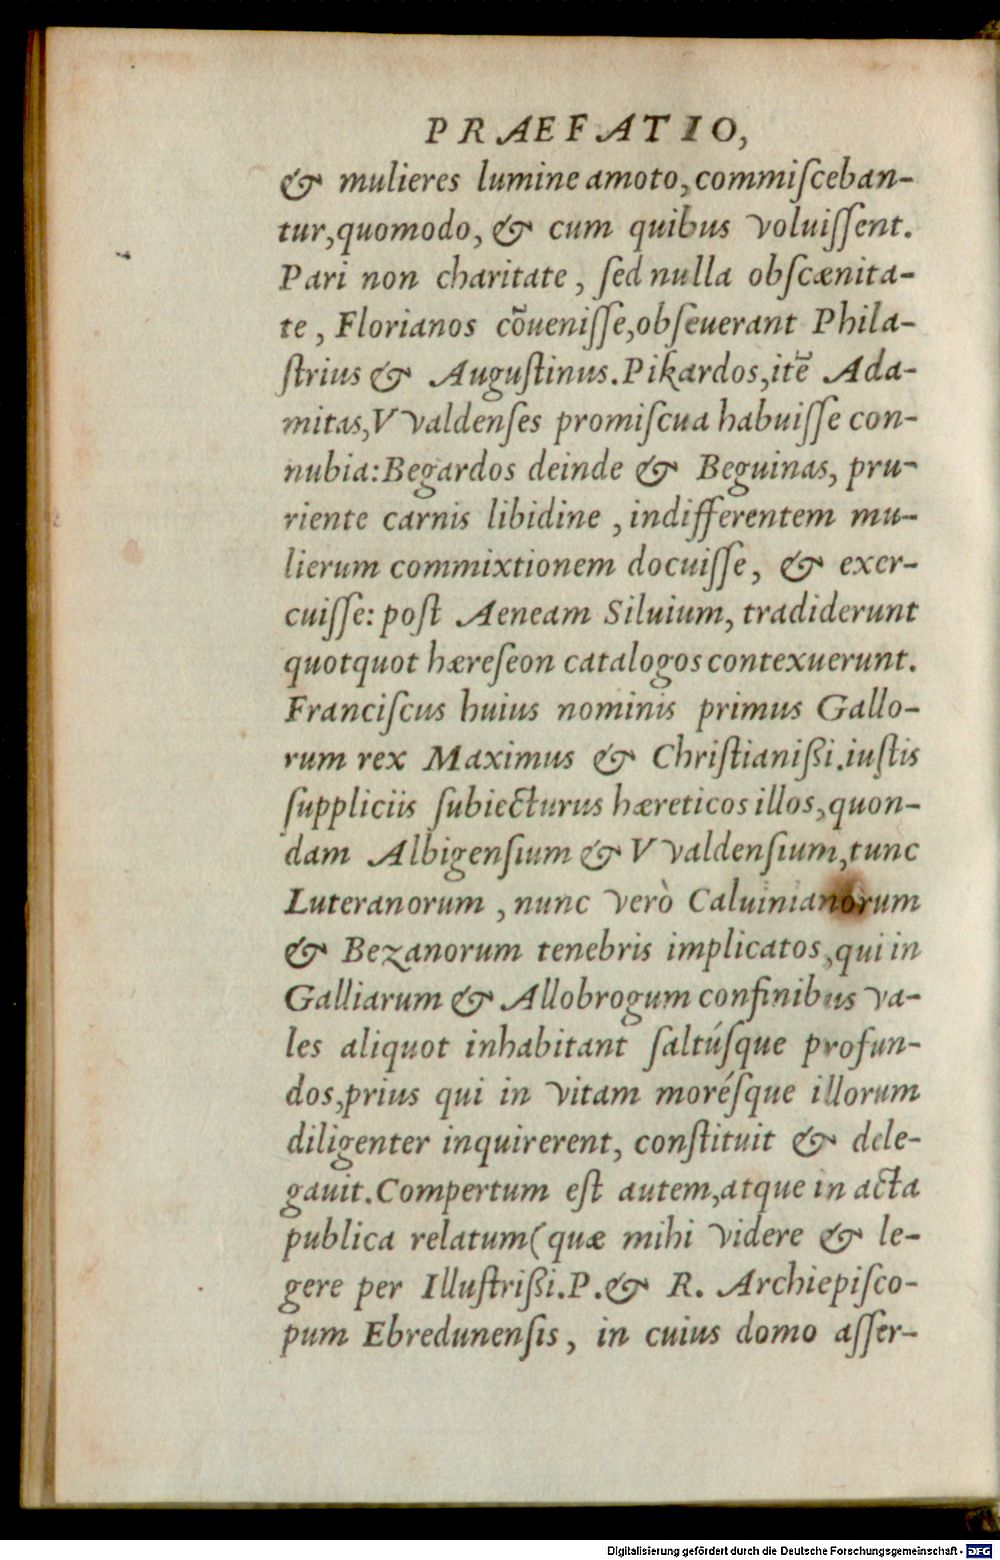 PRAEFATIO,
& mulieres lumine amoto, commiſceban-
tur, quomodo, & cum quibus voluiſſent.
Pari non charitate, ſed nulla obſcænita-
te, Florianos cōueniſſe, obſeuerant Phila-
ſtrius & Auguſtinus. Pikardos, itē Ada-
mitas, VValdenſes promiſcua habuiſſe con-
nubia: Begardos deinde & Beguinas, pru-
riente carnis libidine, indifferentem mu-
lierum commixtionem docuiſſe, & exer-
cuiſſe: poſt Aeneam Siluium, tradiderunt
quotquot hæreſeon catalogos contexuerunt.
Franciſcus huius nominis primus Gallo-
rum rex Maximus & Chriſtianißi. iuſtis
ſuppliciis ſubiecturus hæreticos illos, quon-
dam Albigenſium & VValdenſium, tunc
Luteranorum, nunc verò Caluinianorum
& Bezanorum tenebris implicatos, qui in
Galliarum & Allobrogum confinibus va-
les aliquot inhabitant ſaltúſque profun-
dos, prius qui in vitam moréſque illorum
diligenter inquirerent, conſtituit & dele-
gauit. Compertum eſt autem, atque in acta
publica relatum (quæ mihi videre & le-
gere per Illuſtrißi. P. & R. Archiepiſco-
pum Ebredunenſis, in cuius domo aſſer-
Digitalisierung gefördert durch die Deutsche Forschungsgemeinschaft - DFG